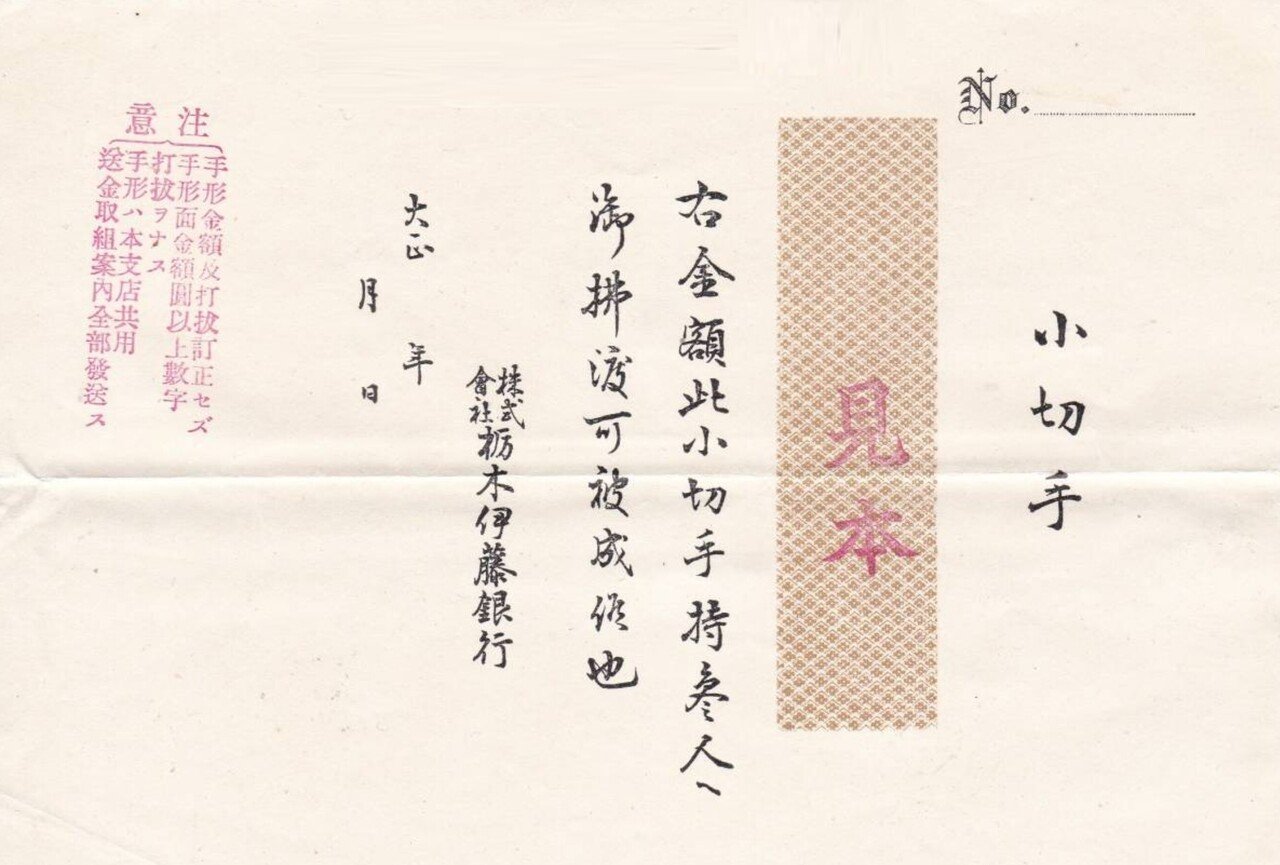 No.
小切手
見本
右金額此小切手持参人へ
御拂渡可被成候也
株式會社栃木伊藤銀行
大正 年
月 日
注意
手形金額及打抜訂正セズ
手形面金額圓以上數字
打拔ヲナス
手形ハ本支店共用
送金取組案內全部發送ス